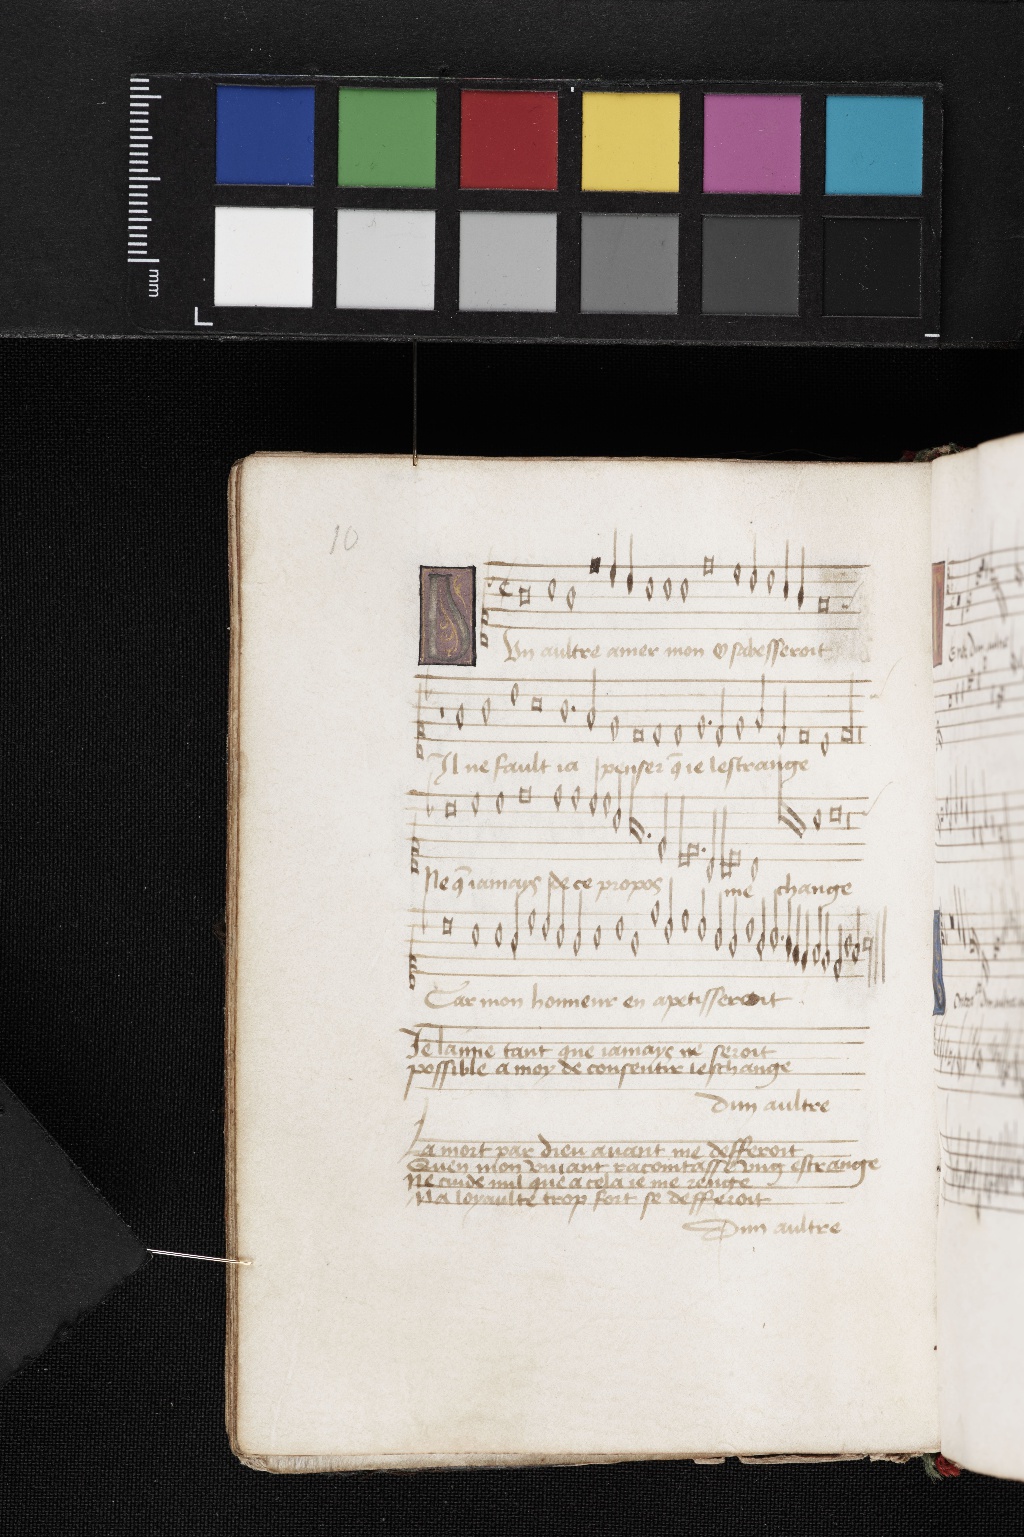 mm
10
D Un aultre amer mon cœ sabesseroit
Il ne fault ia penser q̄ ie lestrange
Ne q̄ iamays de ce propos me change
Car mon honneur en apetisseroit
Je layme tant que iamays ne seroit
possible a moy de consentir leschange
Dun aultre
La mort par dieu auant me defferoit
Quen mon viuant iacointasse vng estrange
Ne cuide nul que a cela ie me renge
Ma loyaulte trop fort se defferoit
Dun aultre